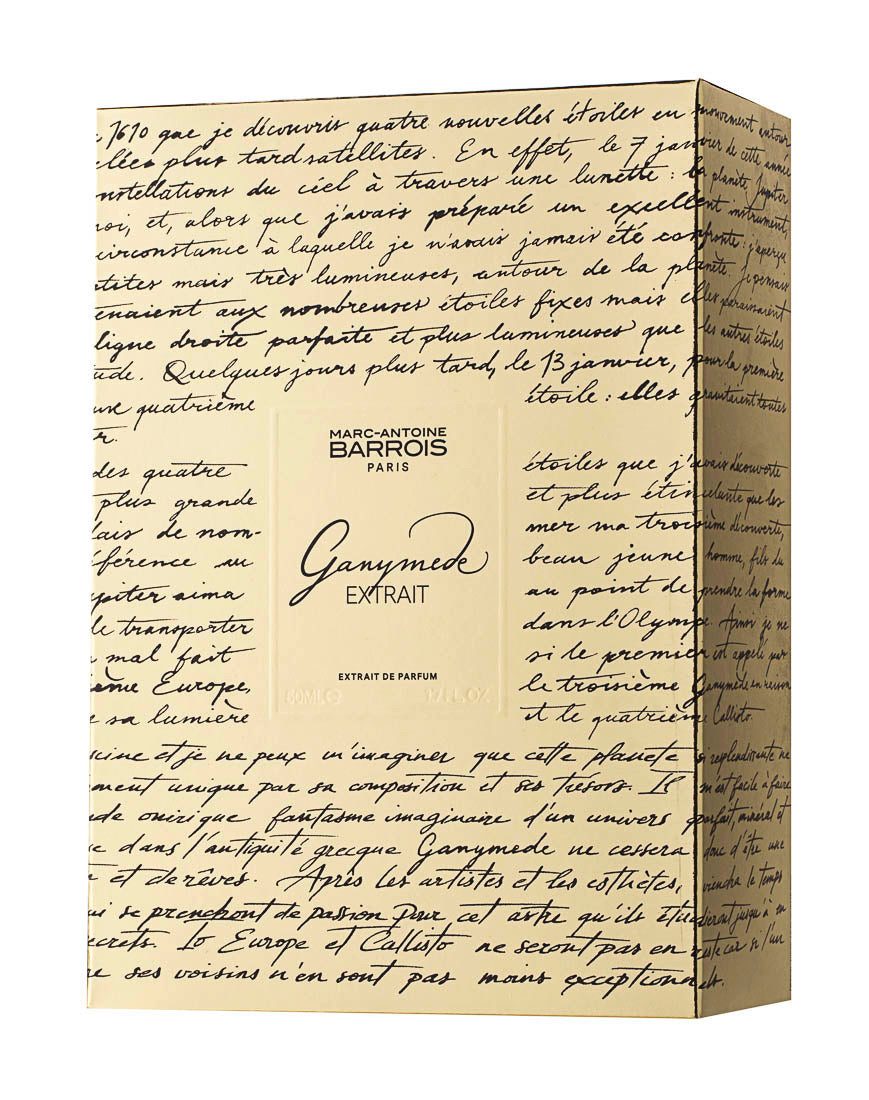 1610 que je découvris quatre nouvelles étoiles en mouvement autour
plus tard satellites. En effet, le 7 janvier de cette année
nstellations du ciel à travers une lunette : la planète Jupiter
noi, et, alors que j'avais préparé un excellent instrument,
circonstance à laquelle je n'avais jamais été confronté : j'aperçu
etites mais très lumineuses, autour de la planète. Je pensais
enaient aux nombreuses étoiles fixes mais elles paraissaient
ligne droite parfaite et plus lumineuses que les autres étoiles
tude. Quelques jours plus tard, le 13 janvier, pour la première
une quatrième étoile : elles gravitaient toutes
er.
MARC-ANTOINE
BARROIS
PARIS
Ganymede
EXTRAIT
EXTRAIT DE PARFUM
50ML℮ 1.7FL.OZ
des quatre étoiles que j'avais découverte
plus grande et plus étincelante que les
lais de nom- mer ma troisième découverte,
fférence au beau jeune homme, fils du
upiter aima au point de prendre la forme
le transporter dans l'Olympe. Ainsi je ne
mal fait si le premier est appelé par
ième Europe, le troisième Ganymede en raison
sa lumière et le quatrième Callisto.
cine et je ne peux m'imaginer que cette planete si resplendissante ne
ment unique par sa composition et ses trésors. Il m'est facile à faire
de onirique fantasme imaginaire d'un univers parfait, minéral et
dans l'antiquité grecque Ganymede ne cessera donc d'être une
et de rêves. Après les artistes et les esthètes, viendra le temps
ui se prendront de passion pour cet astre qu'ils étudieront jusqu'à en
ecrets. Io Europe et Callisto ne seront pas en reste car si l'un
ses voisins n'en sont pas moins exceptionnels.